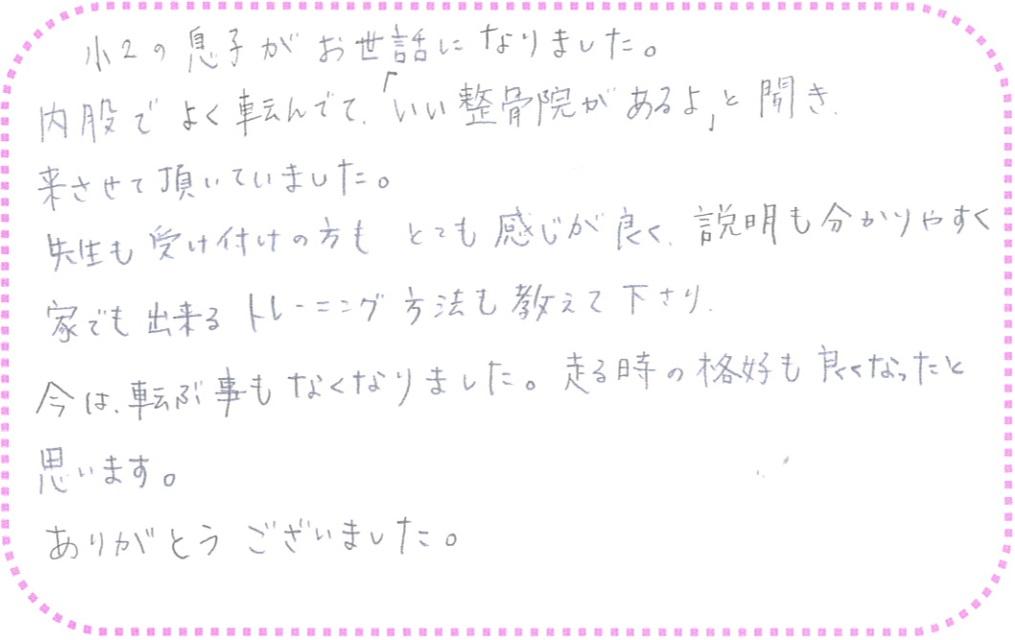 小2の息子がお世話になりました。
内股でよく転んでて、「いい整骨院があるよ」と聞き、
来させて頂いていました。
先生も受け付けの方もとても感じが良く、説明も分かりやすく
家でも出来るトレーニング方法も教えて下さり、
今は、転ぶ事もなくなりました。走る時の格好も良くなったと
思います。
ありがとうございました。